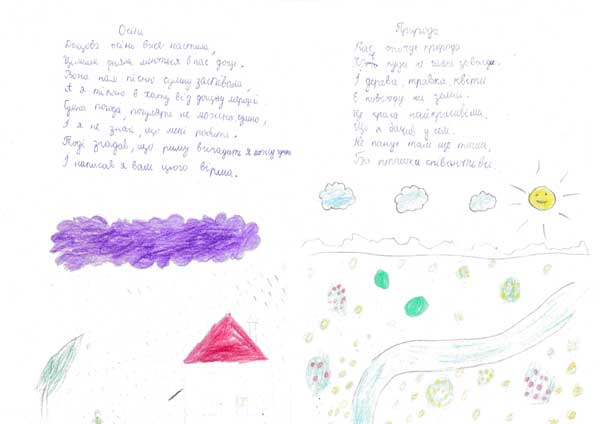 Осінь
Дощова осінь вже настала,
Цілими днями ллються в нас дощі.
Вона нам пісню сумну заспівала,
А я тікаю в хату від дощику мерщій.
Сумна погода, погуляти не можна, сумно,
І я не знаю, що мені робити.
Тоді згадав, що риму вигадати я можу
І написав я вам цього вірша.
Природа
Нас оточує природа
гаї завжди.
І дерева, травка, квіти
Є повсюду на землі.
Це краса найкрасивіша,
Що я бачив у селі.
Не панує там ще тиша,
Бо пташки співають всі.